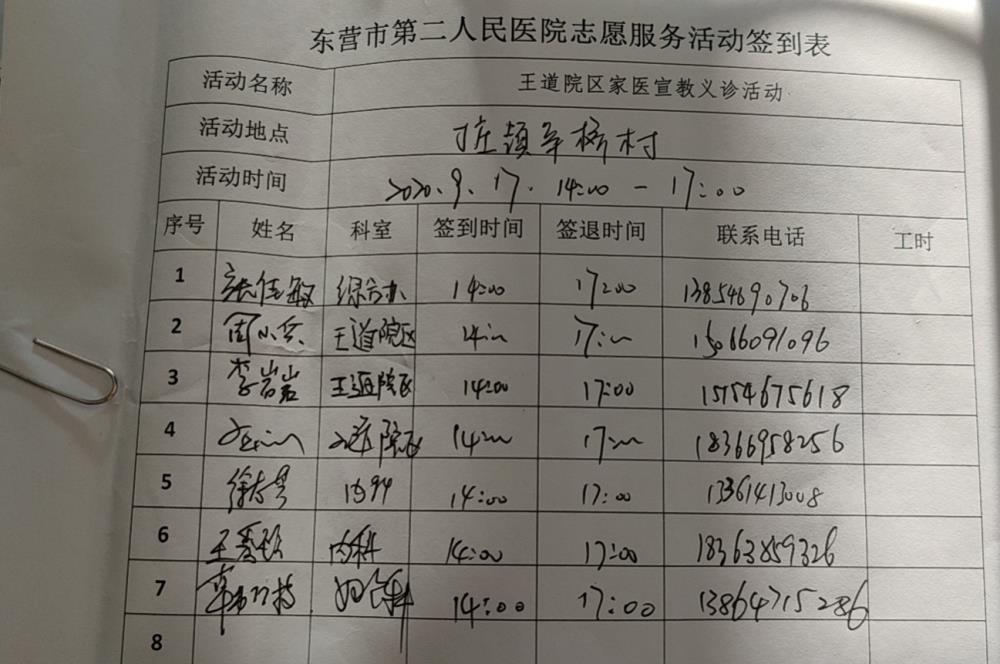 东营市第二人民医院志愿服务活动签到表
活动名称 王道院区家医宣教义诊活动
活动地点 村
活动时间 2020.9.17. 14:00 — 17:00
序号 姓名 科室 签到时间 签退时间 联系电话 工时
1 张佳敏 综合办 14:00 17:00 13854690706
2 周小兵 王道院区 14:00 17:00 15066091096
3 李岩岩 王道院区 14:00 17:00 15754675618
4 院区 14:00 17:00 18366958256
5 徐 内科 14:00 17:00 13361413008
6 王 内科 14:00 17:00 18363859326
7 14:00 17:00 13864715286
8